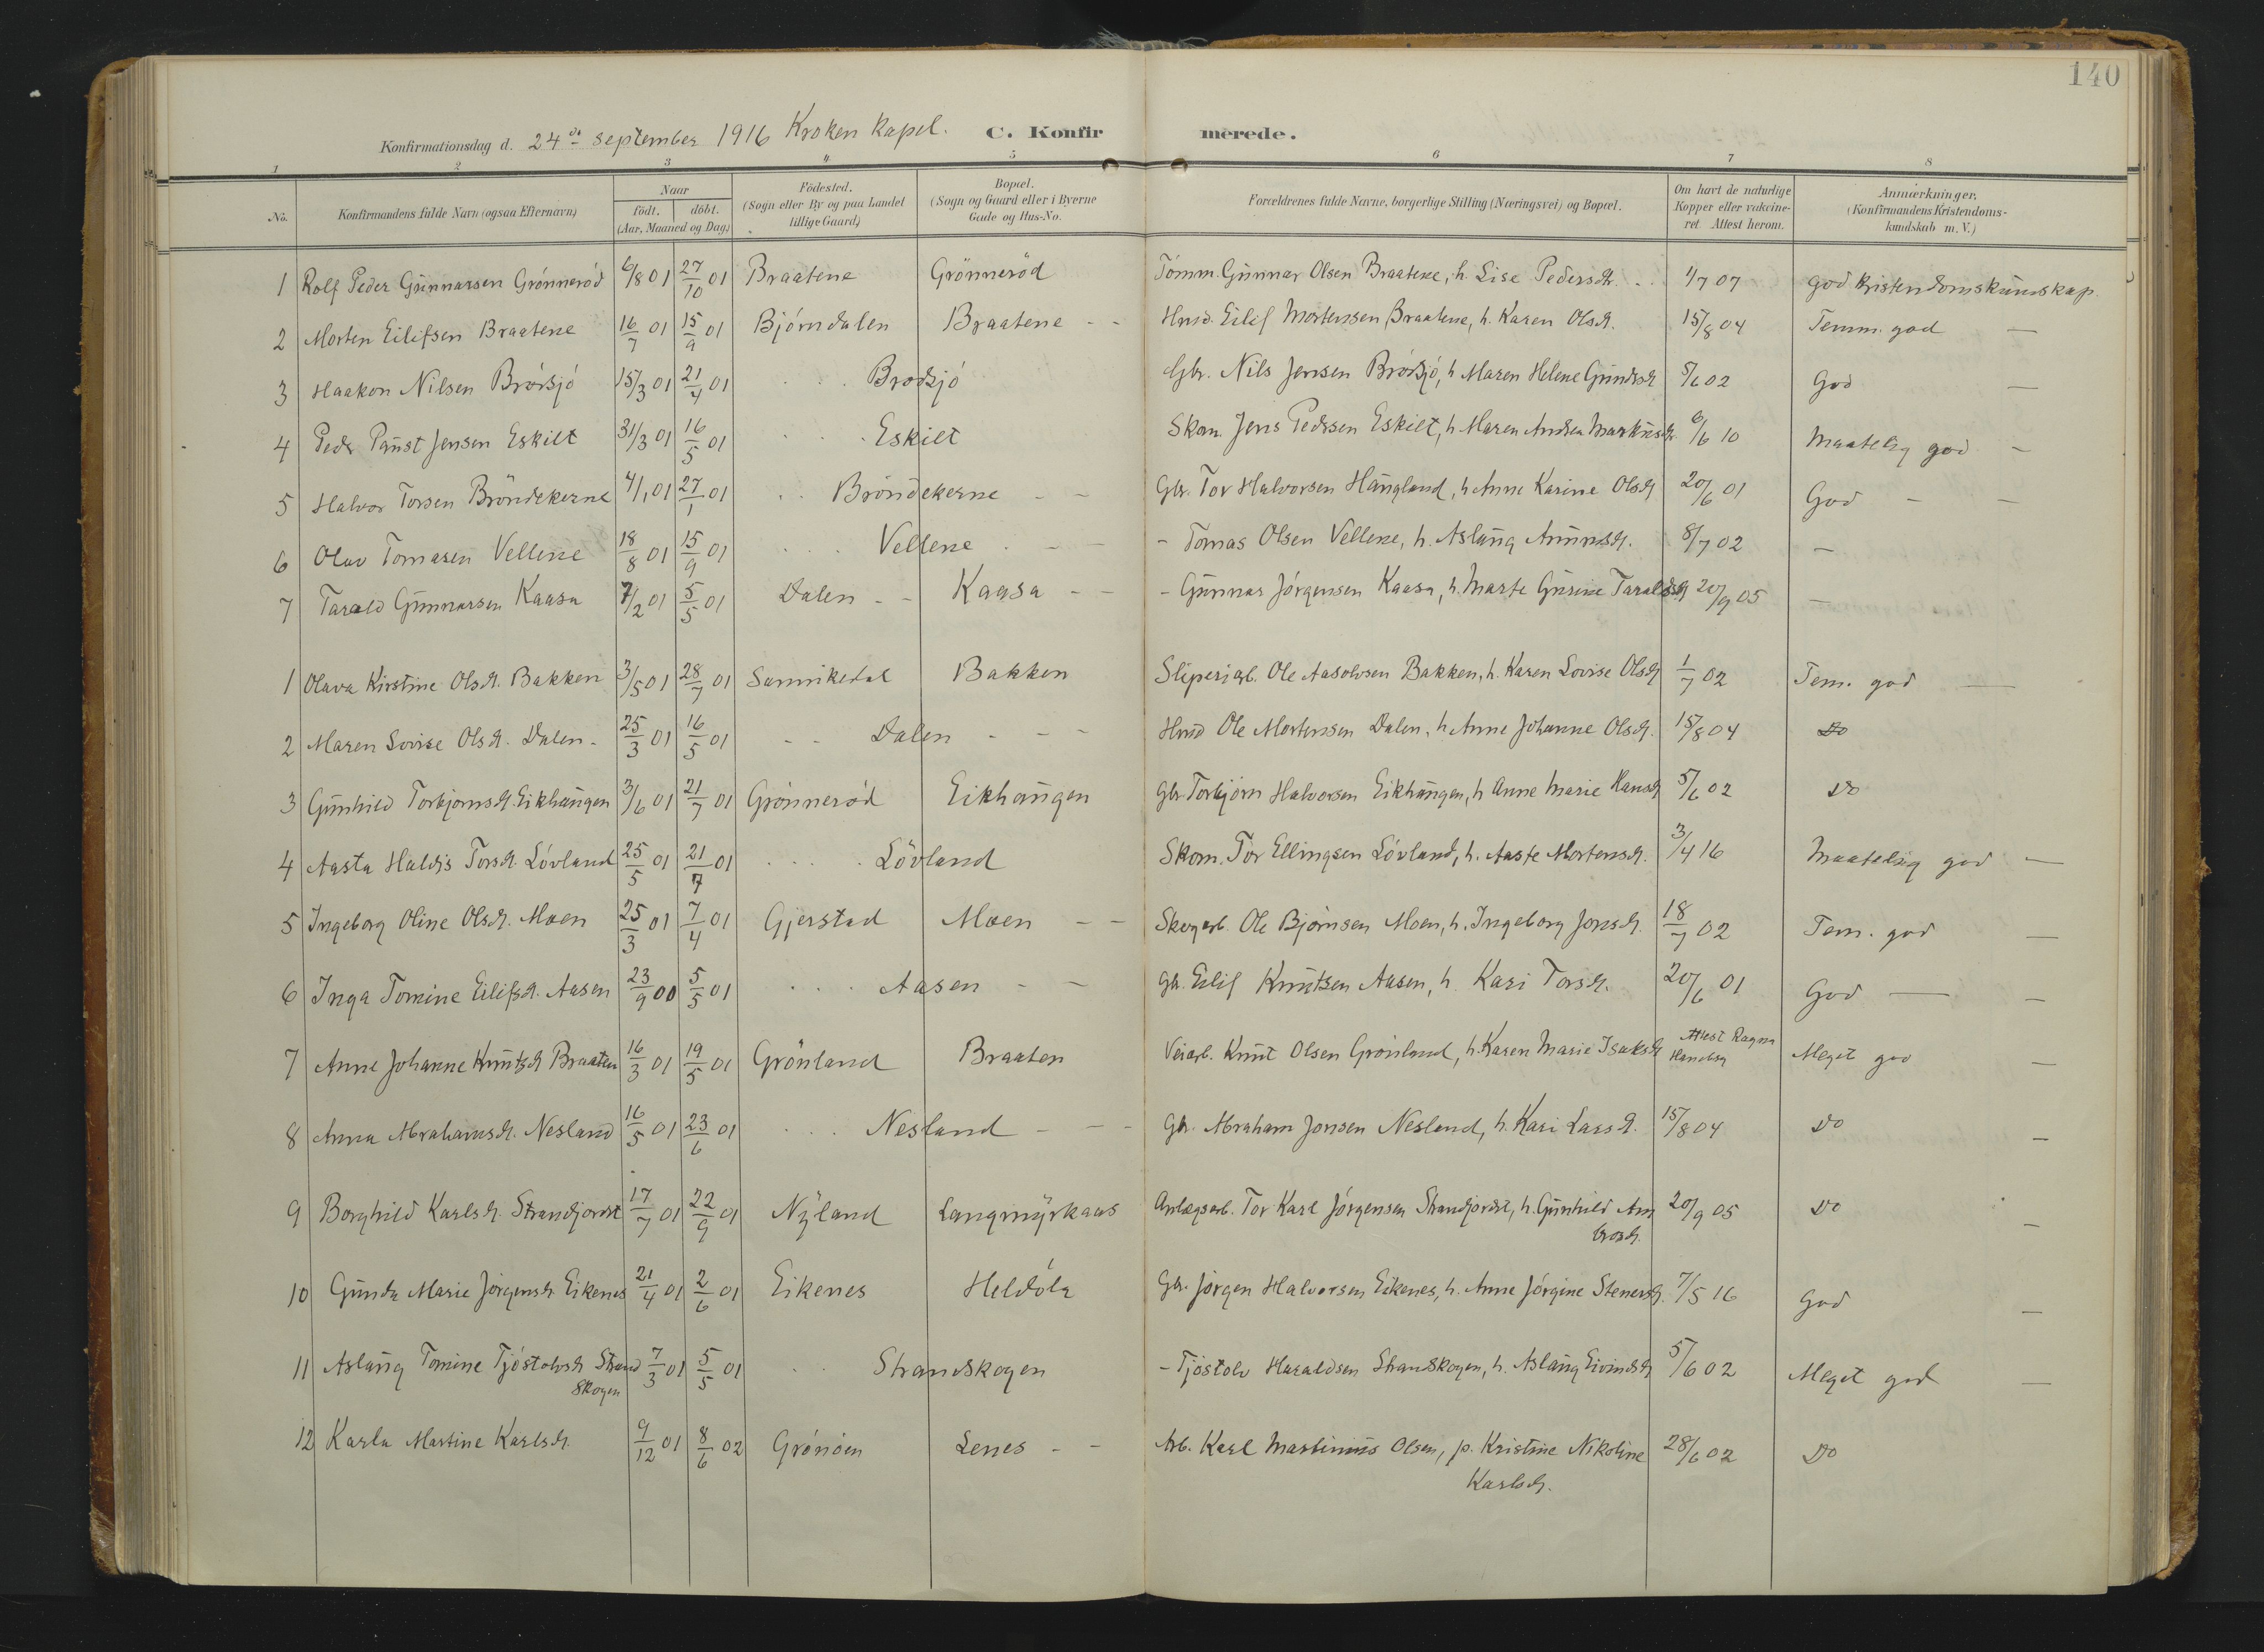 140
Konfirmationsdag d. 24de september 1916 Kroken kapel. C. Konfirmerede.
1 2 3 4 5 6 7 8
No. Konfirmandens fulde Navn (ogsaa Efternavn) Naar födt. döbt. (Aar, Maaned og Dag.) Födested. (Sogn eller By og paa Landet tillige Gaard) Bopæl. (Sogn og Gaard eller i Byerne Gade og Hus-No. Forældrenes fulde Navne, borgerlige Stilling (Næringsvei) og Bopæl. Om havt de naturlige Kopper eller vakcineret. Attest herom. Anmærkninger. (Konfirmandens Kristendomskundskab m. V.)
1 Rolf Peder Gunnarsen Grönneröd 6/8 01 27/10 01 Braatene Grönneröd Tömm. Gunnar Olsen Braatene, h. Lise Pedersdtr. 1/7 07 god kristendomskundskap
2 Morten Eilifsen Braatene 16/7 01 15/9 01 Björndalen Braatene - - Hmd. Eilif Mortensen Braatene, h. Karen Olsdtr. 15/8 04 Temm. god —
3 Haakon Nilsen Brödsjö 15/3 01 21/4 01 Brödsjö Gbr. Nils Jensen Brödsjö, h. Maren Helene 5/6 02 God —
4 Peder Paust Jensen Eskilt 31/3 01 16/5 01 Eskilt Skom. Jens Pedersen Eskilt, h. Maren Andrea Markusdtr. 6/6 10 Maatelig god —
5 Halvor Torsen Bröndekerne 4/1 01 27/1 01 Bröndekerne - - Gbr. Tor Halvorsen Haugland, h. Anne Karine Olsdtr. 20/6 01 God — —
6 Olav Tomasen Vellene 18/8 01 15/9 01 Vellene - - - Tomas Olsen Vellene, h. Aslaug Anundsdtr. 8/7 02 —
7 Tarald Gunnarsen Kaasa 7/2 01 5/5 01 Dalen - - Kaasa - - - Gunnar Jörgensen Kaasa, h. Marte Gurine Taraldsdtr. 20/9 05 —
1 Olava Kirstine Olsdtr. Bakken 3/5 01 28/7 01 Sannikedal Bakken Sliperiarb. Ole Aasolvsen Bakken, h. Karen Lovise Olsdtr. 1/7 02 Tem. god —
2 Maren Lovise Olsdtr. Dalen 25/3 01 16/5 01 - - Dalen - - - Hmd Ole Mortensen Dalen, h. Anne Johanne Olsdtr. 15/8 04 Do
3 Gunhild Torbjornsdtr. Eikhaugen 3/6 01 21/7 01 Grönneröd Eikhaugen Gbr Torbjörn Halvorsen Eikhaugen, h. Anne Marie Hansdtr. 5/6 02 Do
4 Aasta Haldis Torsdtr. Lövland 25/5 01 21/7 01 Lövland Skom. Tor Ellingsen Lövland, h. Aaste Mortensdtr. 3/4 16 Maatelig god —
5 Ingeborg Oline Olsdtr. Moen 25/3 01 7/4 01 Gjerstad Moen - - Skogarb. Ole Björnsen Moen, h. Ingeborg Jonsdtr. 18/7 02 Tem. god —
6 Inga Tomine Eilifsdtr. Aasen 23/9 00 5/5 01 Aasen - - Gbr. Eilif Knutsen Aasen, h. Kari Torsdtr. 20/6 01 God — —
7 Anne Johanne Knutsdtr. Braaten 16/3 01 19/5 01 Grönland Braaten Veiarb. Knut Olsen Grönland, h. Karen Marie Isaksdtr. Attest Ragna
Meget god —
8 Anna Abrahamsdtr. Nesland 16/5 01 23/6 01 Nesland - - - Gbr. Abraham Jonsen Nesland, h. Kari Larsdtr. 15/8 04 Do —
9 Borghild Karlsdtr. Strandjordet 17/7 01 22/9 01 Nyland Langmyrkaas Anlægsarb. Tor Karl Jörgensen Strandjordet, h. Gunhild Am
brosdtr. 20/9 05 Do —
10 Gunda Marie Jörgensdtr. Eikenes 21/4 01 2/6 01 Eikenes Heldöla Gbr. Jörgen Halvorsen Eikenes, h. Anne Jörgine Stenersdtr. 7/5 16 God —
11 Aslaug Tomine Tjöstolvsdtr. Strand
skogen 7/3 01 5/5 01 Strandskogen - Tjöstolv Haraldsen Strandskogen, h. Aslaug Eivindsdtr. 5/6 02 Meget god —
12 Karla Martine Karlsdtr. 9/12 01 8/6 02 Grönöen Lenes - - Arb. Karl Martinius Olsen, p. Kristine Nikoline
Karlsdtr. 28/6 02 Do